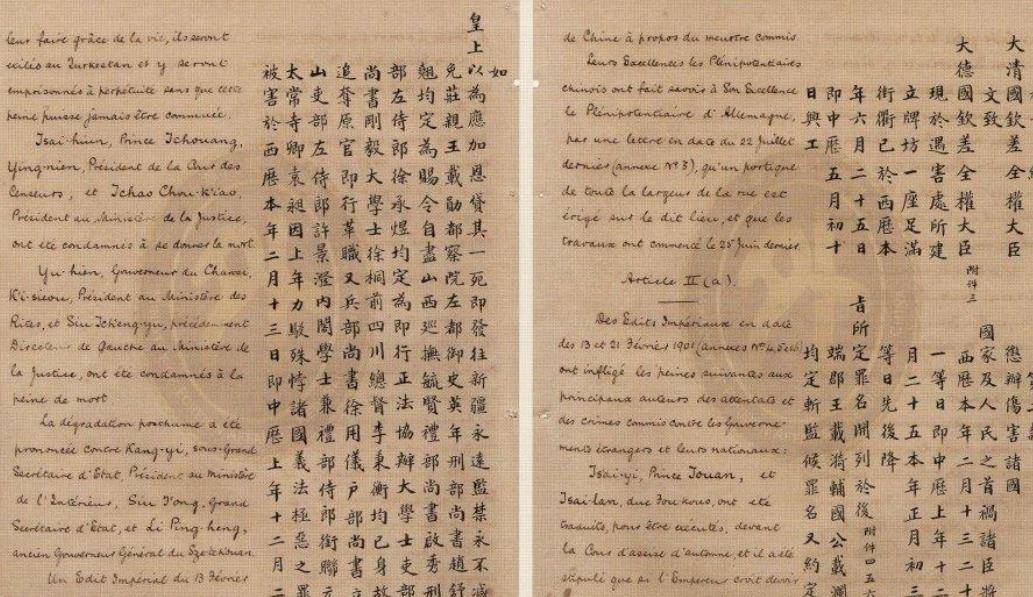 de Chine à propos du meurtre commis
Leurs Excellences les Plénipotentiaires
chinois ont fait savoir à Son Excellence
le Plénipotentiaire d'Allemagne,
par une lettre en date du 22 Juillet
dernier (annexe N° 3), qu'un portique
de toute la largeur de la rue est
érigé sur le dit lieu, et que les
travaux ont commencé le 25 Juin dernier.
Article II (a).
Des Edits Impériaux en date
des 13 et 21 Février 1901 (annexes
ont infligé les peines suivantes aux
principaux auteurs des attentats et
des crimes commis contre les Gouverne-
ments étrangers et leurs nationaux:
Tsai-yi, Prince Touan, et
Tsai-lan, duc Fou-kouo, ont été
traduits, pour être exécutés, devant
la Cour d'assise d'automne, et il a été
stipulé que si l'Empereur croit devoir
大清國欽差全權大臣
文致
大德國欽差全權大臣 附件三
現於遇害處所建
立牌坊一座足滿
街衢已於西歷本
年六月二十五日
即中歷五月初十
日興工
懲辦傷害諸國
國家及人民之首禍諸臣將
西歷本年二月十三二十
一等日即中歷上年十二
月二十五本年正月初三
等日先後降
旨所定罪名開列於後 附件四五六
端郡王載漪輔國公載瀾
均定斬監候罪名又約定
leur faire grâce de la vie, ils seront
exilés au Turkestan et y seront
emprisonnés à perpétuité sans que cette
peine puisse jamais être commuée.
Tsai-hiun, Prince Tchouang,
Ying-nien, Président de la Cour des
Censeurs, et Tchao Chou-k'iao
Président au Ministère de la Justice,
ont été condamnés à se donner la mort
Yu-hien, Gouverneur du Chansi,
K'i-sieou, Président au Ministère des
Rites, et Siu Tch'eng-yu, précédemment
Directeur de Gauche au Ministère de
la Justice, ont été condamnés à la
peine de mort
La dégradation posthume a été
prononcée contre Kang-yi, sous-Grand
Secrétaire d'Etat, Président au Ministère
de l'Intérieur, Siu T'ong, Grand
Secrétaire d'Etat, et Li Ping-heng,
ancien Gouverneur Général du Szetchouan.
Un Edit Impérial du 13 Février
如
皇上以為應加恩貸其一死即發往新疆永遠監禁永不減
免莊親王載勛都察院左都御史英年刑部尚書趙舒
翹均定為賜令自盡山西巡撫毓賢禮部尚書啟秀刑
部左侍郎徐承煜均定為即行正法協辦大學士吏部
尚書剛毅大學士徐桐前四川總督李秉衡均已身故
追奪原官即行革職又兵部尚書徐用儀戶部尚書立
山吏部左侍郎許景澄內閣學士兼禮部侍郎銜聯元
太常寺卿袁昶因上年力駁殊悖諸國義法極惡之罪
被害於西歷本年二月十三日即中歷上年十二月二